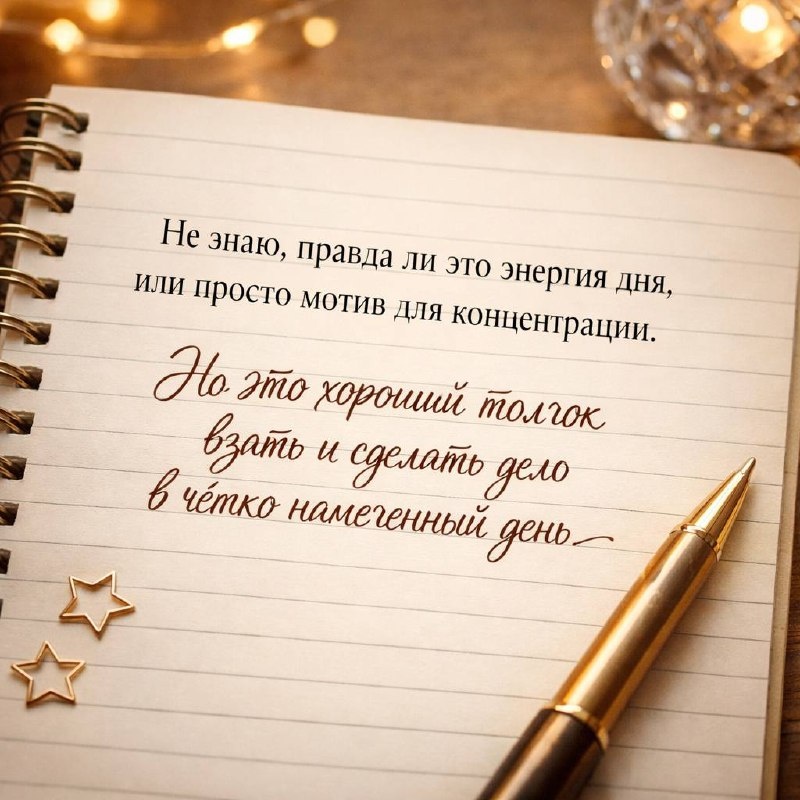 Не знаю, правда ли это энергия дня,
или просто мотив для концентрации.
Но это хороший толгок
взать и сделать дело
в чётко намегенный день